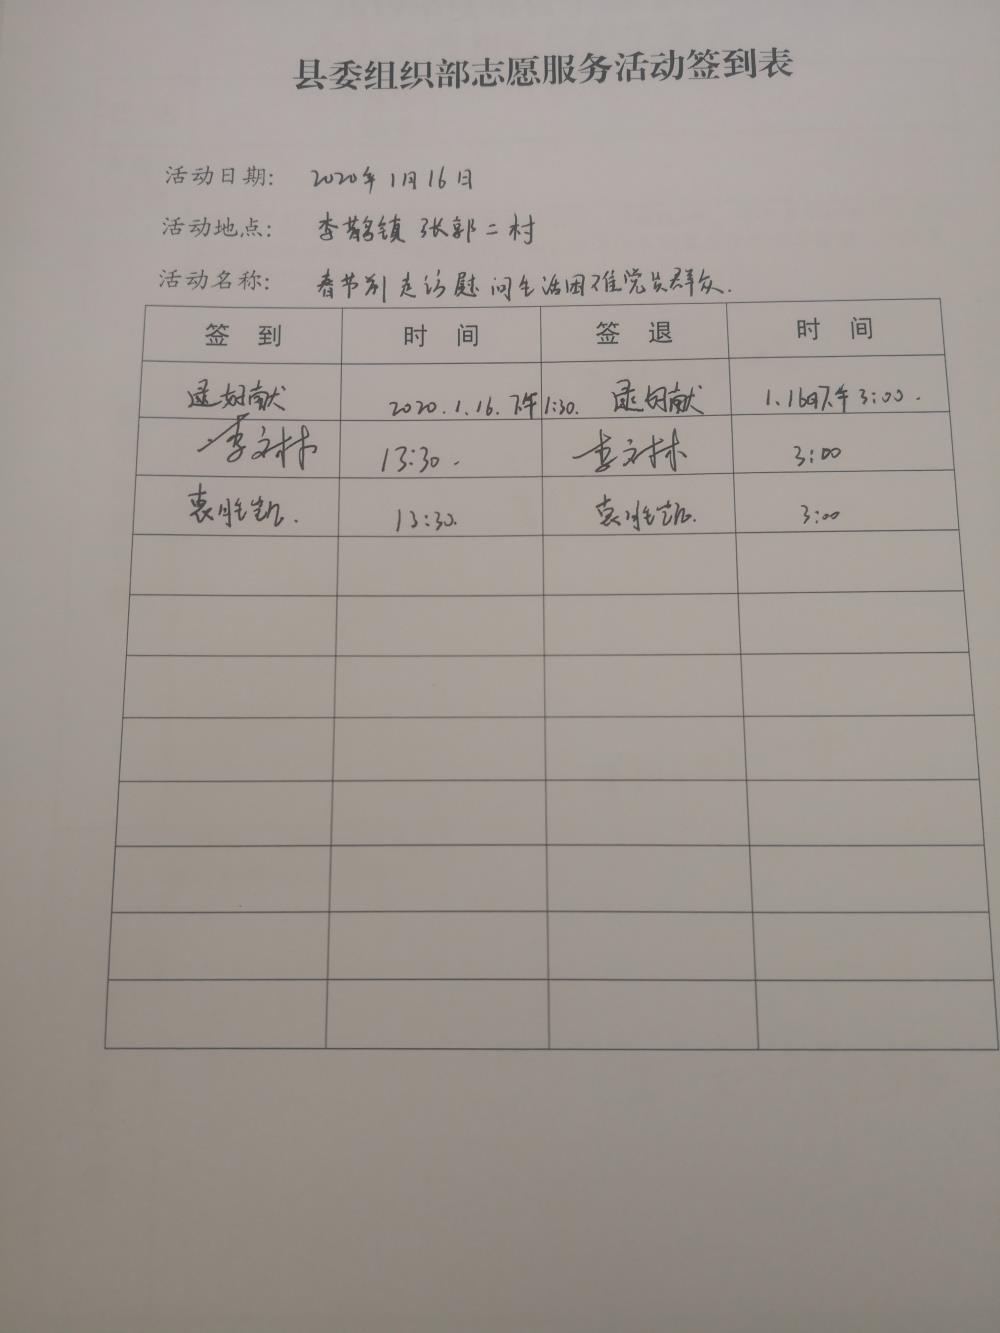 县委组织部志愿服务活动签到表
活动日期: 2020年1月16日
活动地点: 李鹊镇 张郭二村
活动名称: 春节前走访慰问生活困难党员群众.
签 到 时 间 签 退 时 间
2020.1.16.下午1:30. 1.16日下午3:00.
李文林 13:30. 李文林 3:00
袁胜凯. 13:30. 袁胜凯. 3:00